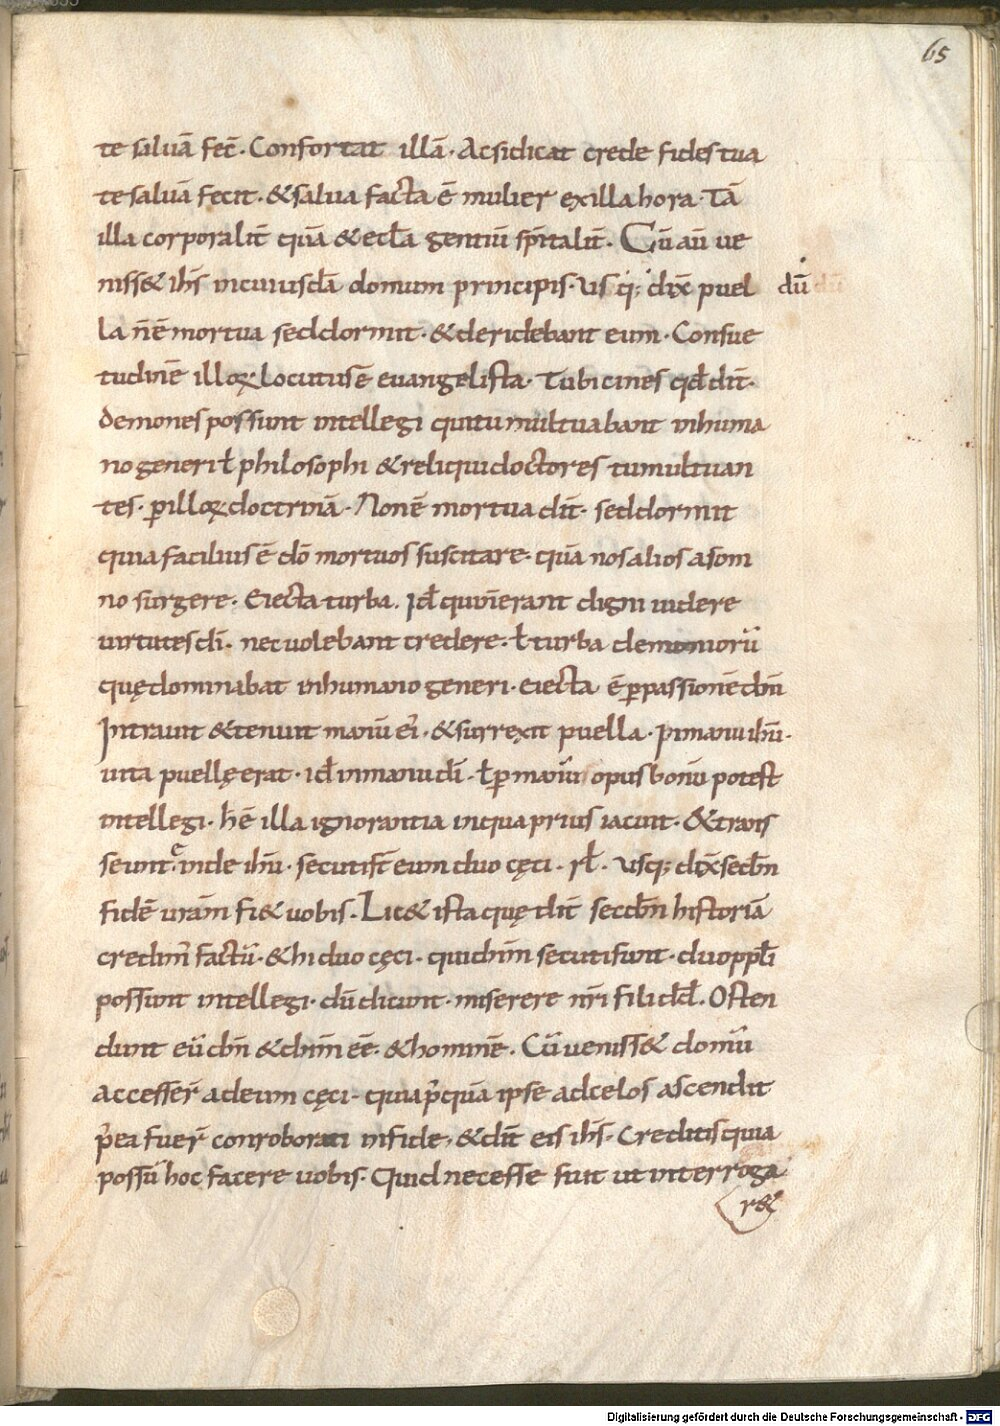 65
te saluā fec̄. Confortat illā. Acsidicat crede fidestua
tesaluā fecit. &salua facta ē mulier exillahora. Tā
illa corporalit̄ quā &eccl̄a gentiū sp̄italit̄. Cū aū ue
niss& ih̄s incuiusdā domum principis. us q; dix̄ puel dū
la n̄ ē mortua seddormit. &deridebant eum. Consue
tudinē illoꝝ locutus ē euangelista. Tubicines qd̄ dīt.
demones possunt intellegi quitumultuabant inhuma
no generi ł philosophi &reliquidoctores tumultuan
tes. ꝑilloꝝ doctrinā. Non ē mortua dīt. seddormit
quia facilius ē dō mortuos suscitare. quā nos alios asom
no surgere. Eiecta turba. id̄ quin̄erant digni uidere
uirtutes dī. nec uolebant credere. ł turba demoniorū
quę dominabat inhumano generi. eiecta ē ꝑpassionē dn̄i
Intrauit &tenuit manū ei̓. &surrexit puella. Inmanu ih̄u.
uita puellę erat. id̄ inmanu dī. ł ꝑ manū opus bonū potest
intellegi. h̄ ē illa ignorantia inqua prius iacuit. &trans
seunt̄e inde ih̄u. secuti st̄ eum duo cęci. rł. usq; dix̄ secd̄m
fidē ur̄am fi& uobis. Lic& ista quę dīt secd̄m historiā
credim̄ factū. &hi duo cęci. qui dn̄m secuti sunt. duo ppłi
possunt intellegi. dū dicunt. miserere nr̄i fili dd̄. Osten
dunt eū dn̄ &dn̄m eē. &hominē. Cū uenisset domū
accesser̄ adeum cęci. quia p̓quā ipse adcelos ascendit
p̓ea fuer̄ conroborati infide. &dīt eis ih̄s. Creditis quia
possū hoc facere uobis. Quid necesse fuit ut interroga
r&
Digitalisierung gefördert durch die Deutsche Forschungsgemeinschaft - DFG